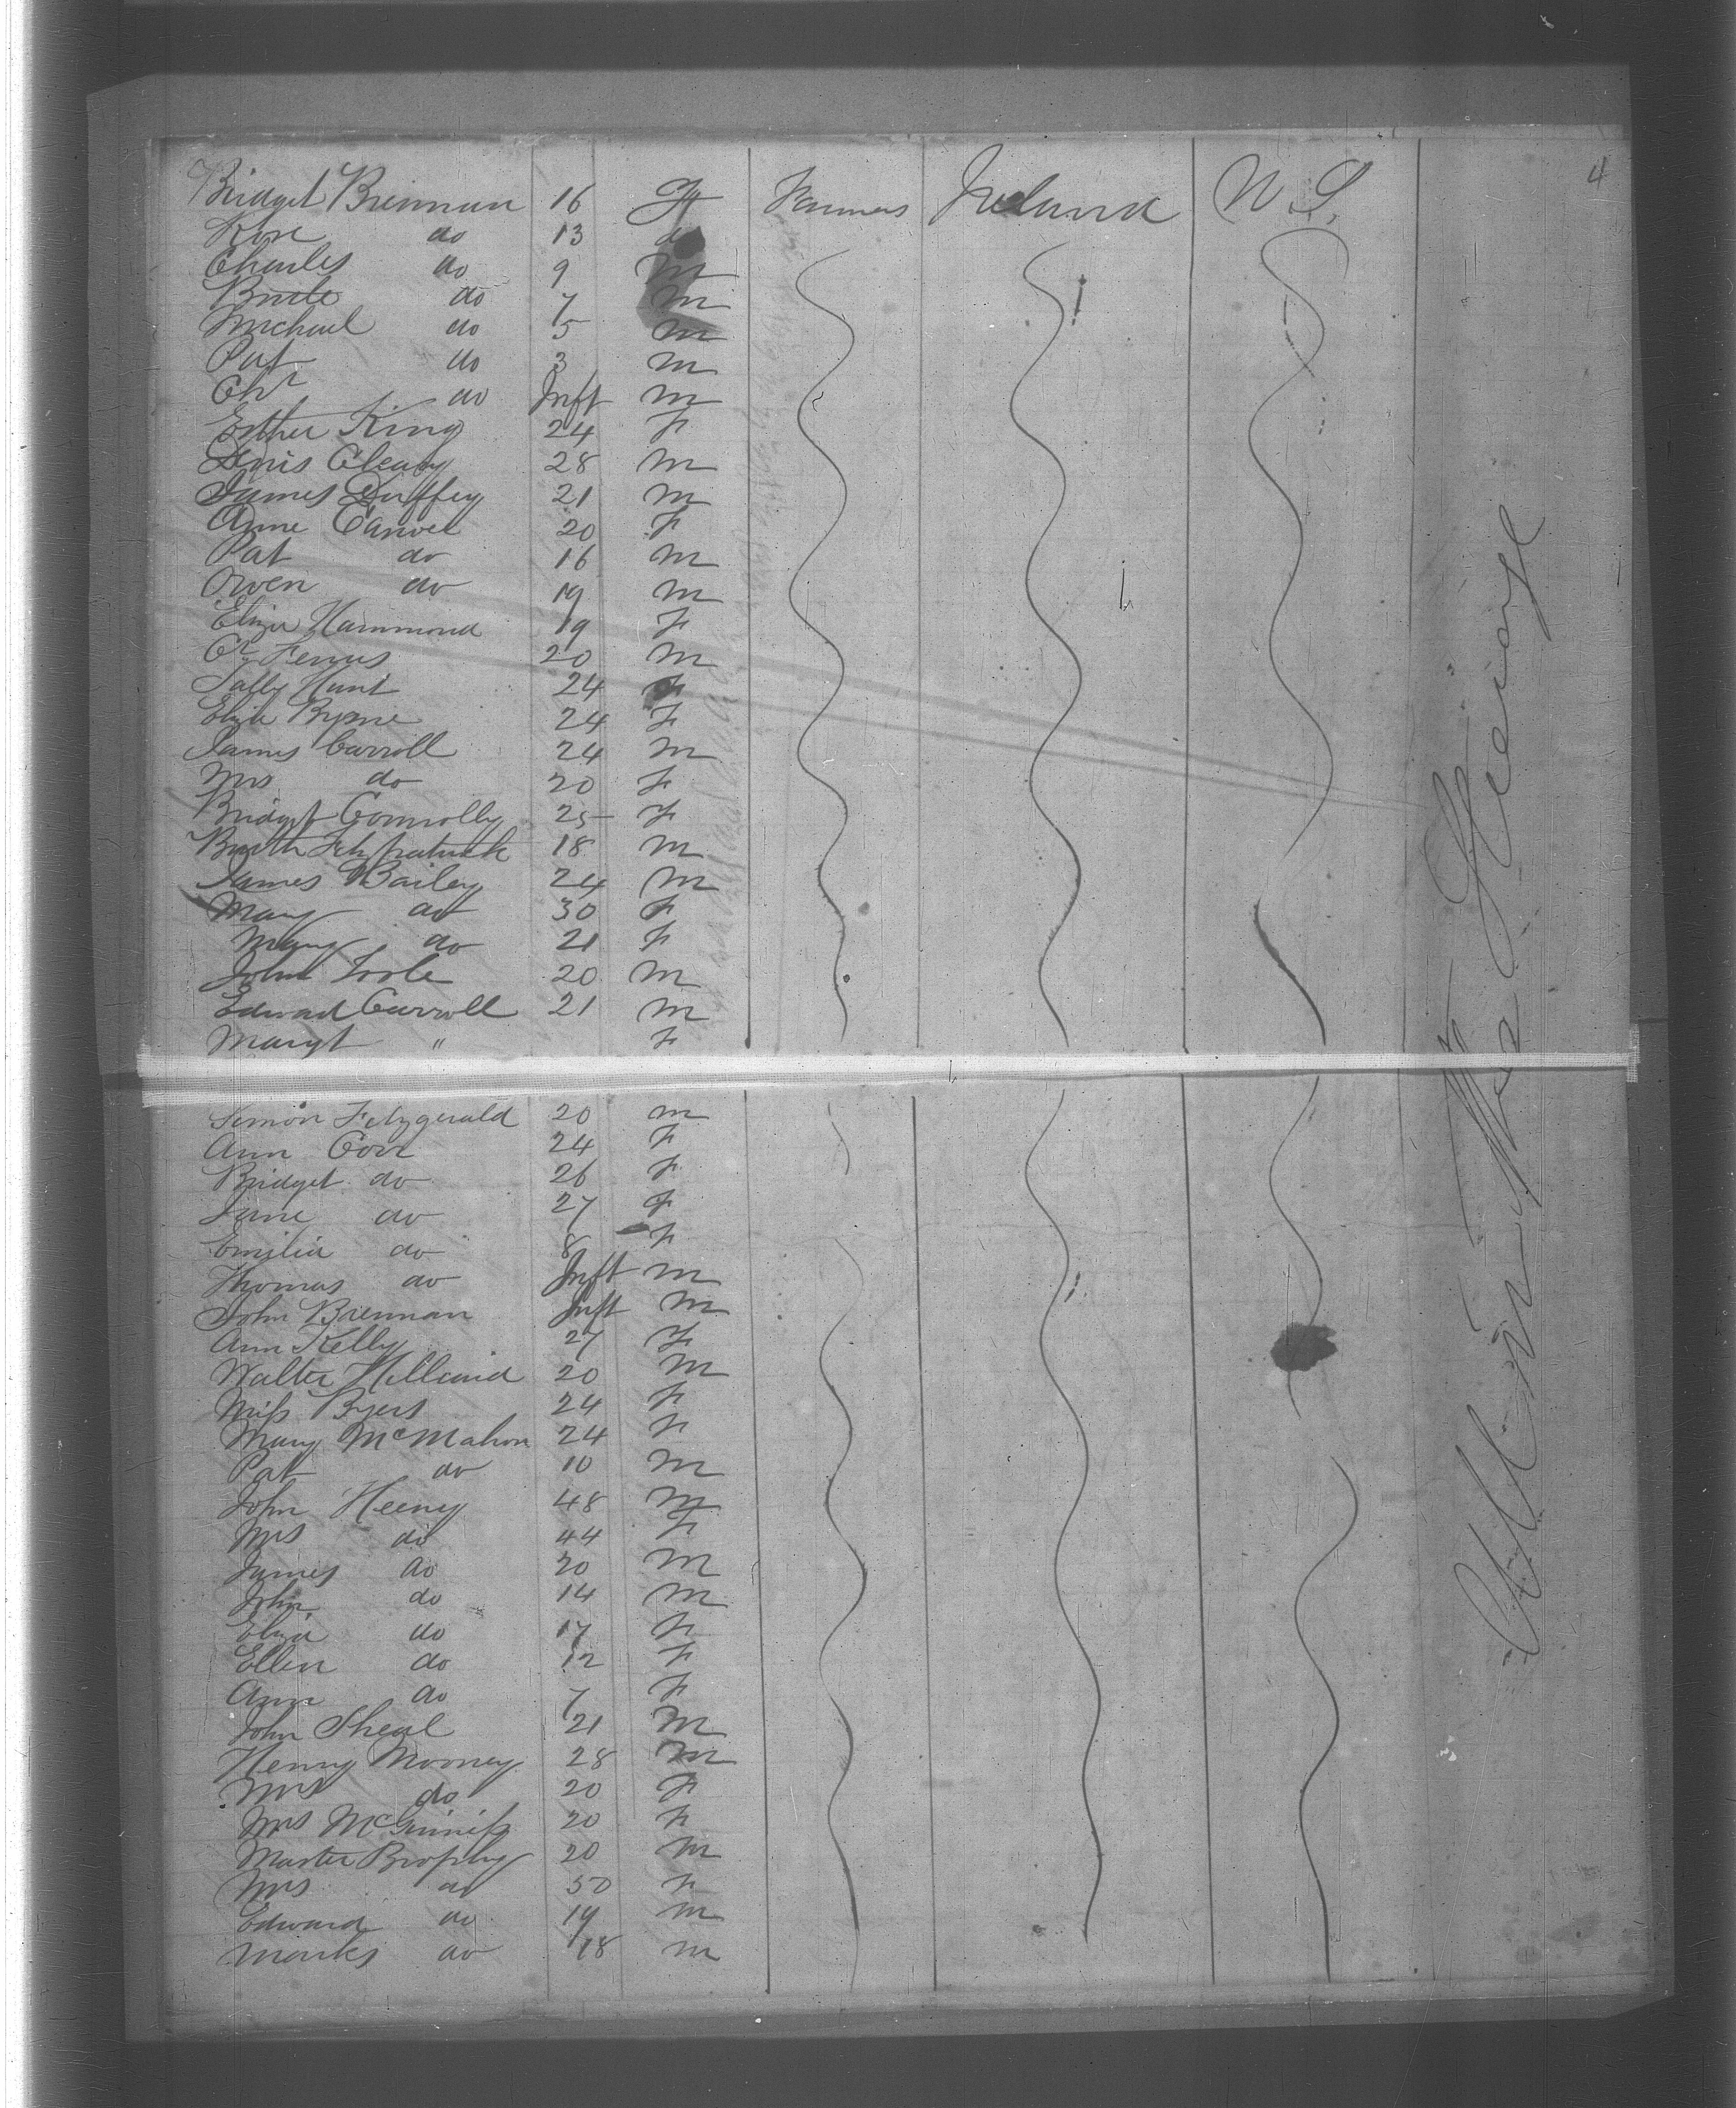 4
Bridget Brennan 16 F Farmers Ireland U.S.
Rose do 13 do
Charles do 9 m
do 7 m
Michael do 5 m
Pat do 3 m
Chr do Inft m
Esther King 24 F
Denis Cleary 28 m
James Duffey 21 m
Anne 20 F
Pat do 16 m
Owen do 19 m
Eliza Hammond 19 F
20 m
Sally Hunt 24 F
Eliza Byrne 24 F
James Carroll 24 m
Mrs do 20 F
Bridget Connolly 25 F
Barth Fitzpatrick 18 m
James Bailey 24 m
Mary do 30 F
Mary do 21 F
John Toole 20 m
Edward Carroll 21 m
Margt " F
Simon Fitzgerald 20 m
Ann Corr 24 F
Bridget do 26 F
Jane do 27 F
Emilia do 8 F
Thomas do Inft m
John Brennan Inft m
Ann Kelly 27 F
Walter 20 m
Miss Byers 24 F
Mary McMahon 24 F
Pat do 10 m
John Heeney 48 m
Mrs do 44 F
James do 20 m
John do 14 m
Eliza do 17 F
Ellen do 12 F
Ann do 7 F
John Sheal 21 m
Henry Mooney 28 m
Mrs do 20 F
Mrs McGinniss 20 F
Master Brophy 20 m
Mrs do 50 F
Edward do 19 m
Marks do 18 m